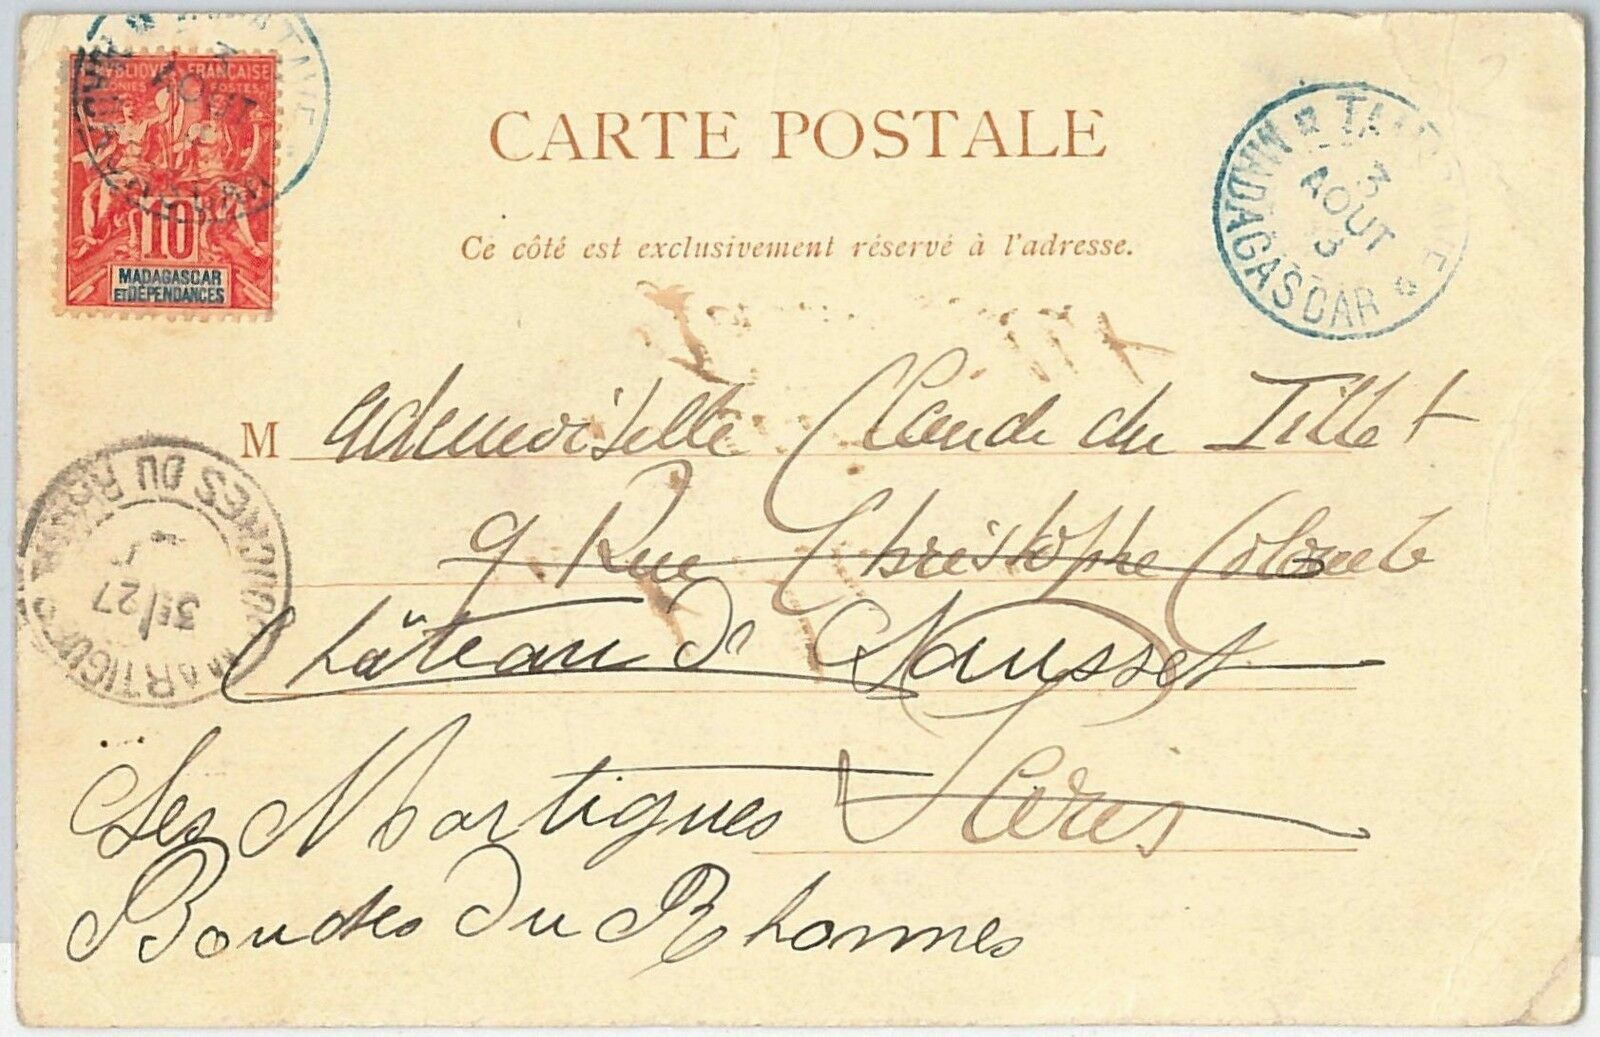 RÉPUBLIQUE FRANÇAISE
COLONIES POSTES
10
MADAGASCAR
ET DÉPENDANCES
AOUT
MADAGASCAR
CARTE POSTALE
Ce côté est exclusivement réservé à l'adresse.
3
AOUT
3
MADAGASCAR
M ademoiselle Claude du Tillet
9 Rue Christophe Colomb
Château de Sausset
Paris
Les Martigues
Bouches du Rhonnes
MARTIGUES
BOUCHES DU RHONE
3E/27